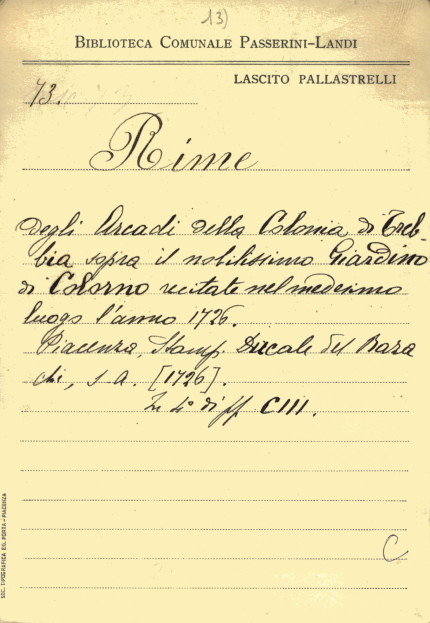 13)
BIBLIOTECA COMUNALE PASSERINI-LANDI
LASCITO PALLASTRELLI
73.
Rime
degli Arcadi della Colonia di Treb-
bia sopra il nobilissimo Giardino
di Colorno recitate nel medesimo
luogo l'anno 1726.
Piacenza, Stamp. Ducale del Baza
chi, s. a. [1726].
In 4° di ff CIII.
C
SOC. TIPOGRAFICA ED. PORTA - PIACENZA